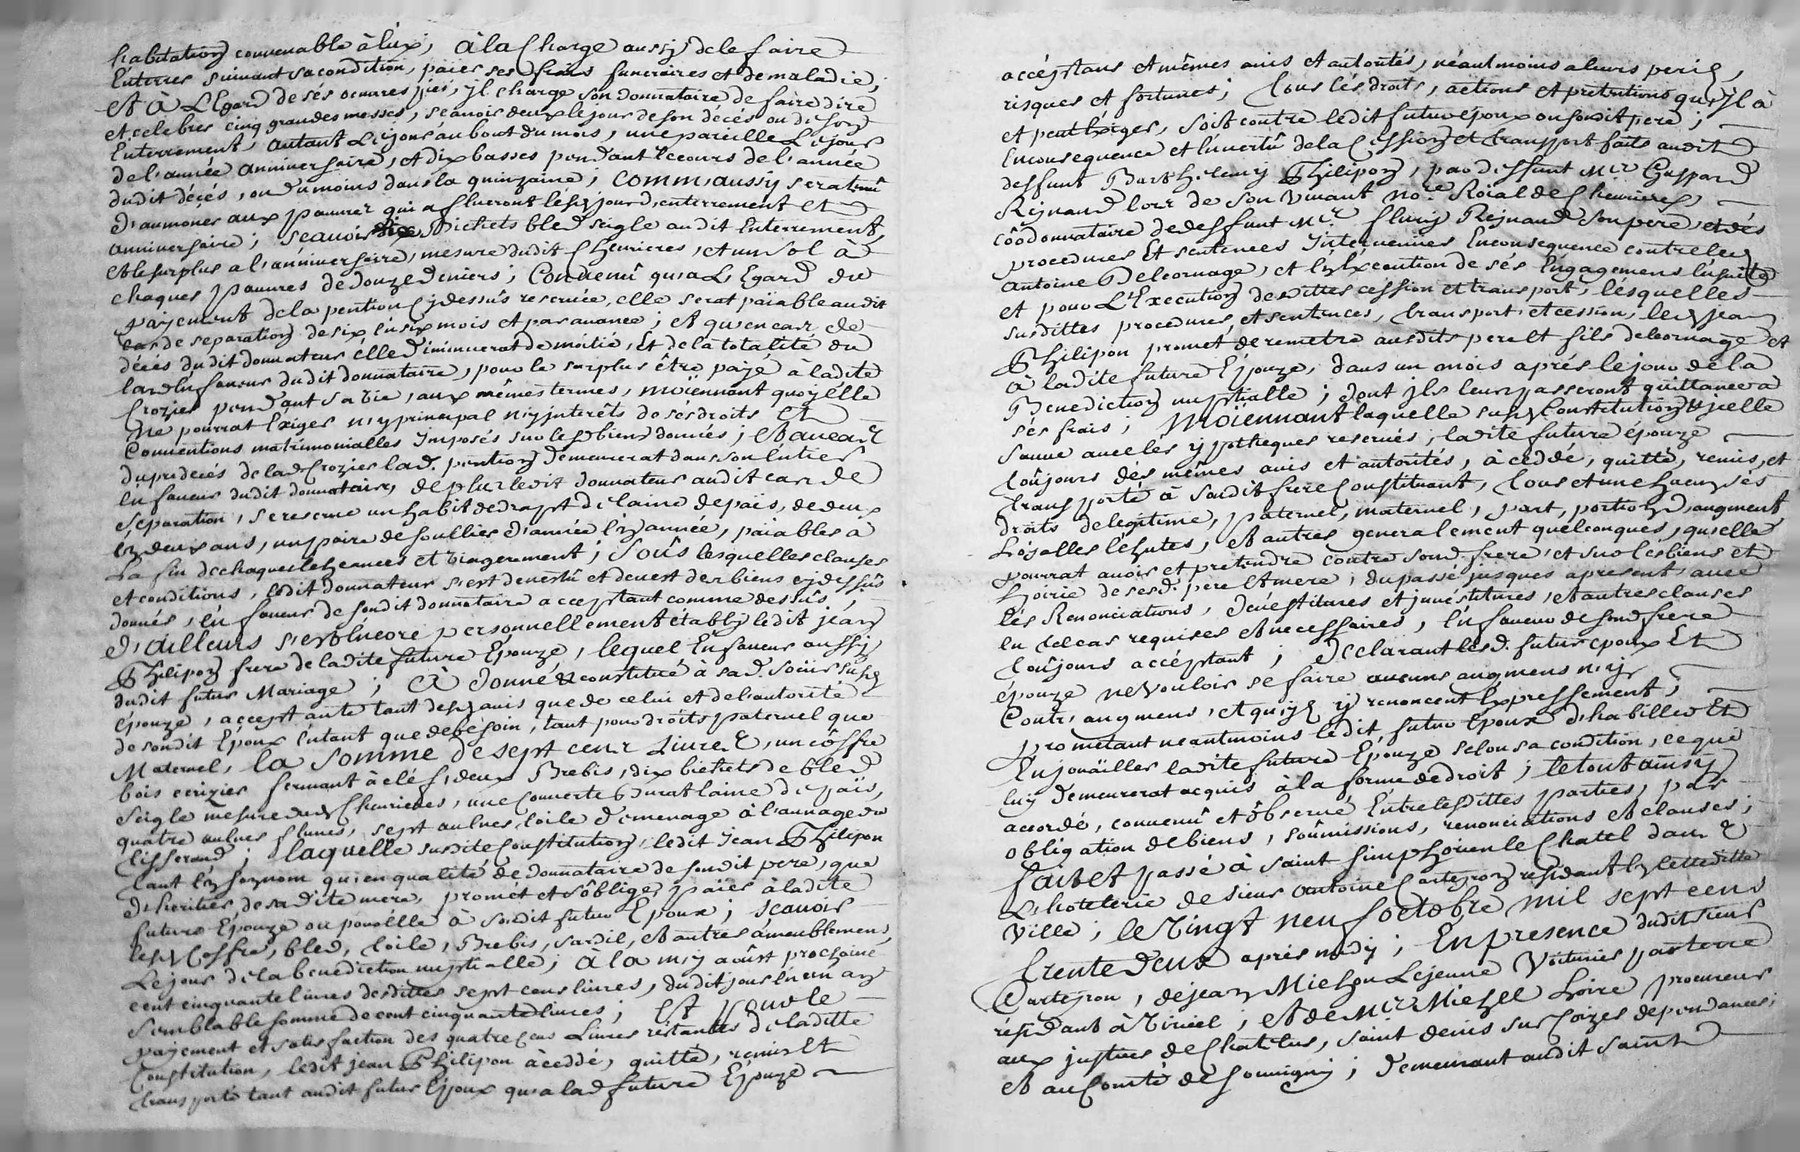 habitation convenable à luy, à la Charge aussy de le faire
Enterrer suivant sa condition, païer ses frais funeraires et de maladie,
Et à L'Egard de ses oeuvres pies, jl charge son donnataire de faire dire
et celebrer cinq grandes messes, sçavoir deux le jour de son décés ou de son
Enterrement, autant Le jour du bout du mois, une pareille Le jour
de l'année anniversaire, et dix basses pendant le cours de l'année
dudit décés, ou du moins dans la quinzaine; Comm'aussy serat tenû
d'aumôner aux pauvres qui afflueront lesd. jours d'enterrement et
anniversaire; sçavoir dix bichets bled seigle audit Enterrement,
et le surplus a l'anniversaire, mesure dudit Chevrieres, et un sol à
chaques pauvres de douze deniers; Convenû qu'a L'Egard du
païement de la pention cy dessus reservée, elle serat païable audit
cas de separation de six en six mois et par avance; et qu'en cas de
décés dudit donnateur elle diminuerat de moitié, et de la totalité du
lard en faveur dudit donnataire, pour le surplus être payé à ladite
Crozier pendant sa vie, aux mêmes termes, moïennant quoy elle
ne pourrat Exiger ny principal ny jnterêts de ses droits et
Conventions matrimonialles jmposés sur lesd. biens donnés; Et au cas
du predecés de lad. Crozier lad. pention demeurerat dans son entier
en faveur dudit donnataire, de plus ledit donnateur audit cas de
séparation, se reserve un habit de drapt de laine de païs, de deux
en deux ans, une paire de soulliers d'année en année, païables à
La fin de chaque lesd. années et viagerement; sous lesquelles clauses
et conditions, ledit donnateur s'est devestû et devest des biens cy dessus
donnés, en faveur de sondit donnataire acceptant comme dessus,
D'ailleurs s'est Encore personnellement établÿ ledit jean
Philipon frere de ladite future Epouze, lequel En faveur aussy
dudit futur Mariage; A donné & constitué à sad. soeur future
épouze, acceptante tant de son avis que de celui et de l'autorité
de sondit Epoux entant que de besoin, tant pour droits paternel que
Maternel, la somme de sept cens Livres, un côffre
bois cerizier fermant à clé, deux Brebis, dix bichets de bled
seigle mesure dud. Chevrieres, une Couverte sur laine de païs,
quatre aulnes sardil, sept aulnes toile de menage à l'aunage du
tisserand; laquelle susdite Constitution, ledit Jean Philipon
tant En son nom qu'en qualité de donnataire de sondit pere, que
d'heritier de sadite mere, promet et s'oblige païer à ladite
future Epouze ou pour Elle à sondit futur Epoux; sçavoir
lesd. Coffre, bled, toile, Brebis, sardil, et autres ameublemens
Le jour de la benediction nuptialle; à la my août prochaine
cent cinquante livres desdittes sept cens livres, dudit jour en un an
semblable somme de cent cinquante livres; Et pour le
païement et satisfaction des quatre cens Livres restantes de laditte
Constitution, ledit jean Philipon à ceddé, quitté, remis et
transporté tant audit futur Epoux qu'a lad. future Epouze
accéptans et mêmes avis et autorités, néantmoins a leurs perils,
risques et fortunes; tous les droits, actions et pretentions qu'jl à
et peut Exiger, soit contre ledit futur époux ou sondit pere;
En consequence et En vertû de la Cession et transport faits audit
deffunt Barthelemy Philipon, par deffunt Mre Gaspard
Reynaud lors de son vivant nore Roïal de Chevrieres,
côodonnataire de deffunt Mre fleury Reynaud son pere, et des
procedures et sentences jntervenues En consequence contre led.
Antoine Delcornage, et En Execution de ses Engagemens Ensuite
et pour L'Execution desdittes cession et transport, lesquelles
susdittes procedures, et sentences, transport et cession, led. jean
Philipon promet de remettre ausdits pere et fils delcornage et
à ladite future Epouze, dans un mois aprés le jour de la
Benediction nuptialle; dont jls leur passeront quittance à
ses frais; Moïennant laquelle susd. Constitution, jcelle
sauve avec les hypotheques reservés, ladite future épouze
toûjours des mêmes avis et autorités, à cedde, quitté, remis, et
transporté à sondit frere Constituant, tous et un chacuns ses
droits de légitime, paternel, maternel, part, portion, augment,
Loyalles échutes, et autres generalement quelconques, qu'elle
pourrat avoir et pretendre contre sond. frere et sur les biens et
hoirie de sesd. pere et mere, du passé jusques apresent avec
les Renonciations, devestitures et jnvestitures, et autres clauses
en tel cas requises et necessaires, En faveur de sond. frere
toûjours accéptant; declarant lesd. futurs époux et
épouze ne vouloir se faire aucuns augmens ny
Contr'augmens, et qu'jls y renoncent Expressement;
prometant neantmoins ledit futur Epoux d'habiller et
Enjoüailler ladite future Epouze selon sa condition, ce que
luy demeurerat acquis à la forme de droit; le tout ainsy
accordé, convenû et observé Entre lesdittes parties, par
obligation de biens, soûmissions, renonciations et clauses;
fait et passé à saint simphorien le Chatel dans
L'hotelerie de sieur antoine Carteyron residant En cette ditte
ville; le Vingt neuf octobre mil sept cens
trente deux aprés midy; En presence dudit sieur
Carteyron, de jean Michon Lejeune Voiturier par terre
résidant à Viricel; et de Mre Michel Loire procureur
aux justices de Chatelus, saint denis sur Coizes dependances;
Et au Comté de souvigny; demeurant audit saint